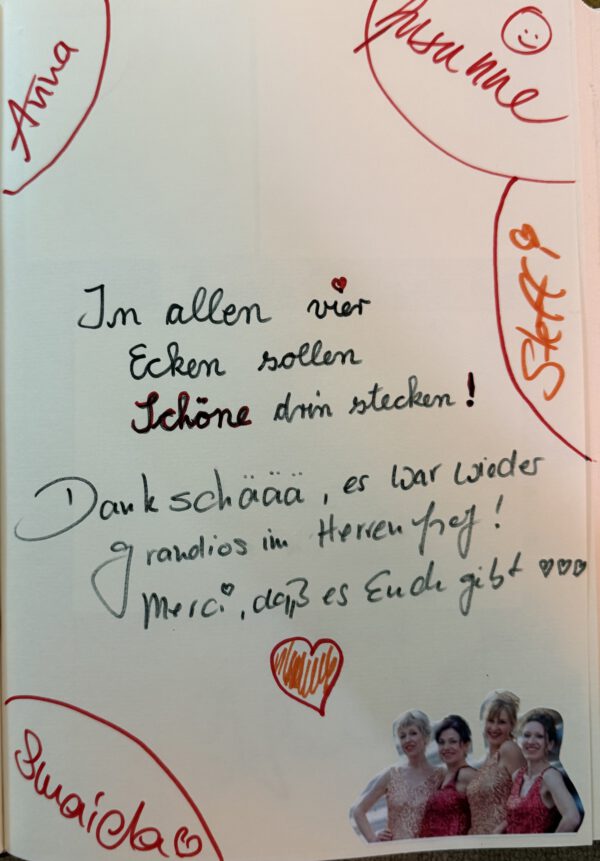 Anna
Susanne
Steffi
In allen vier
Ecken sollen
Schöne drin stecken!
Dankschäää, es war wieder
grandios im Herrenhof!
Merci, daß es Euch gibt ♡♡♡
Smaida